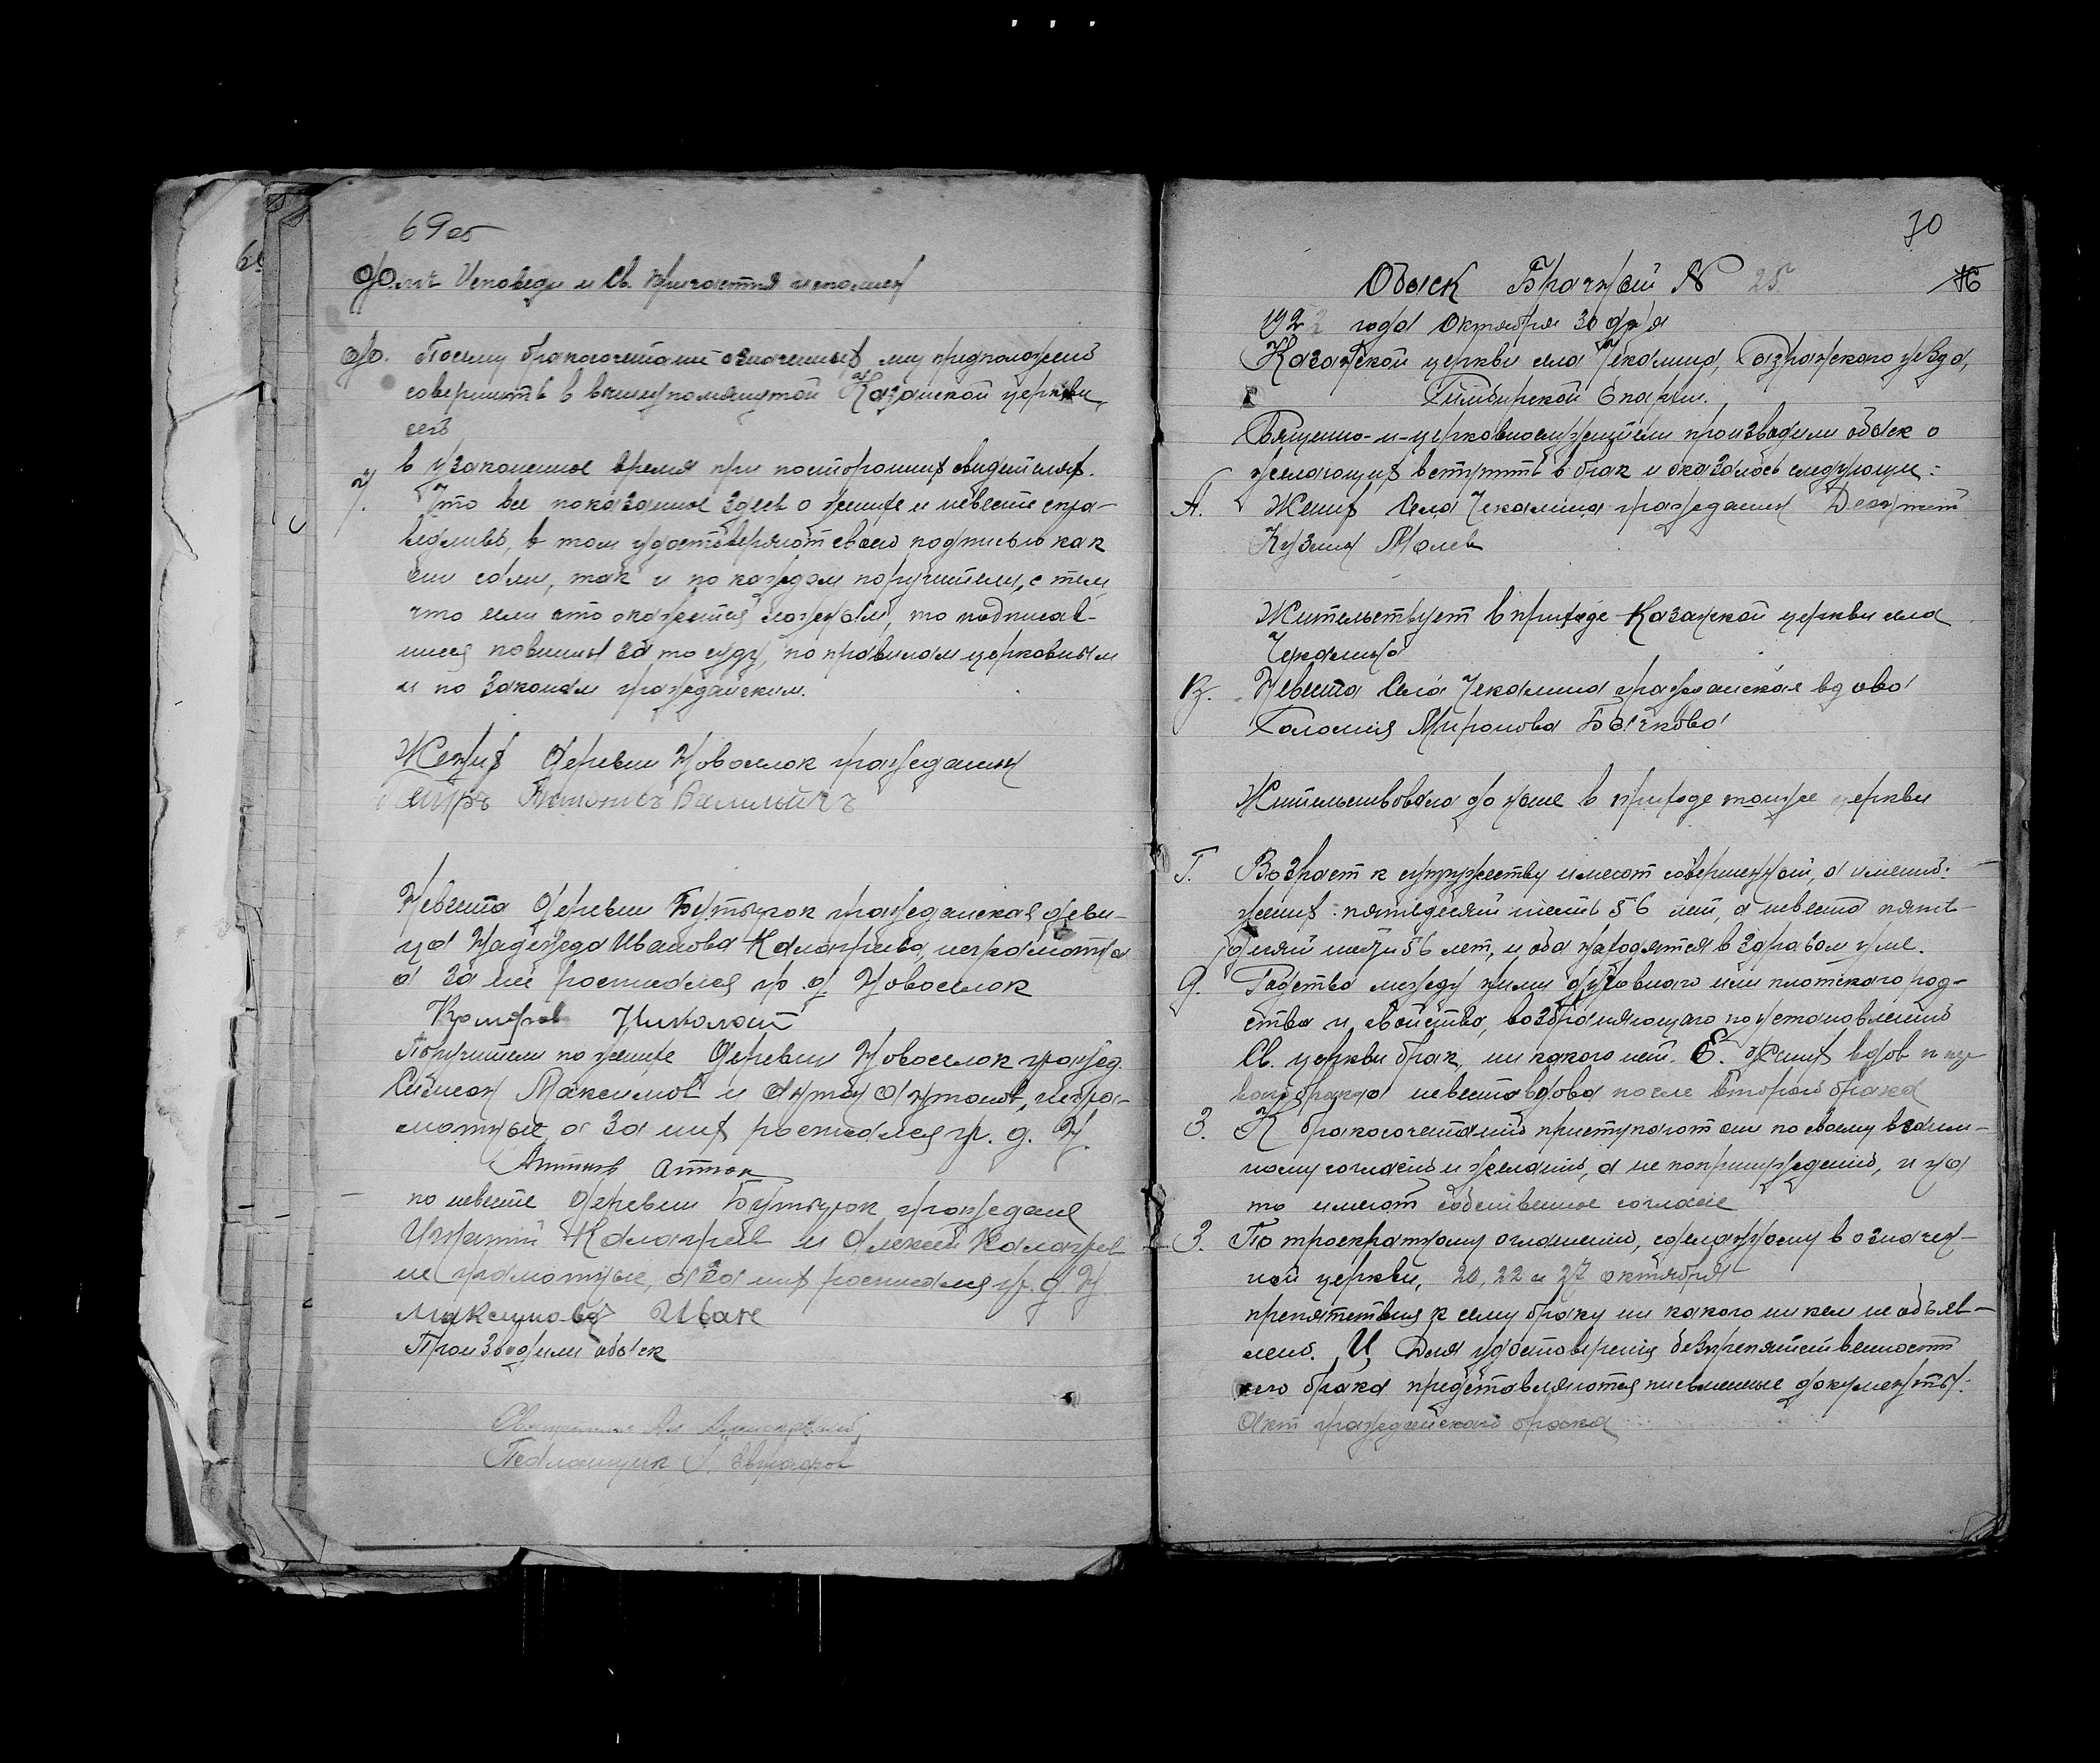 69 об
долг Исповеди и Св. Причастия исполнен
Ф. Посему бракосочетание означенных лиц предположено
совершить в вышеупомянутой Казанской церкви,
сего
в узаконенное время при посторонних свидетелях.
У. Что все показанное здесь о женихе и невесте спра-
ведливо, в том удостоверяют своею подписью как
они сами, так и по каждом поручители, с тем,
что если что окажется ложным, то подписав-
шиеся повинны за то суду, по правилам церковным
и по законам гражданским.
Жених деревни Новоселок гражданин
Невеста деревни Бутырок гражданская деви-
ца Надежда Иванова Калачрева, неграмотна
а за нее росписался гр. д. Новоселок
Николай
Поручители по женихе деревни Новоселок гражд.
Симеон Максимов и Антон Антонов, негра-
мотные, а за них росписался гр. д. Н.
по невесте деревни Бутырок граждане
Игнатий и Алексей
не грамотные, а за них росписался гр. д. Н
Максимовъ Иван
Производили обыск
Священник
Псаломщик
70
Обыск Брачный № 25
1922 года Октября 30 дня
Казанской церкви села Чекалина, Сызранского уезда,
Симбирской Епархии.
Священно-и-церковнослужители производили обыск о
желающих вступить в брак и оказалось следующее:
А. Жених Села Чекалина гражданин
Кузмин Малев
Жительствует в приходе Казанской церкви села
Чекалина
В. Невеста Села Чекалина гражданская вдова
Соломия Миронова Бычкова
Жительствовала до ныне в приходе тойже церкви
Г. Возраст к супружеству имеют совершенный, а именно:
жених пятьдесят шесть 56 лет, а невеста пять-
десят шести 56 лет, и оба находятся в здравом уме.
Д. Родства между ними духовного или плотского род-
ства и свойства, возбраняющаго по установлению
Св. церкви брак, ни какого нет. Е. Жених вдов после
брака невеста вдова после второго брака
З. К бракосочетанию приступают они по своему взаим-
ному согласию и желанию, а не по принуждению, и на
то имеют собственное согласие
З. По троекратному оглашению, сделанному в означен-
ной церкви, 20, 22 и 27 октября
препятствия к сему браку ни какого никем не объяв-
лено. И. Для удостоверения безпрепятственности
сего брака представляются письменные документы:
Акт гражданского брака